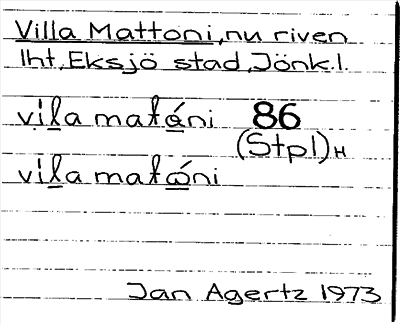 Villa Mattoni, nu riven
lht, Eksjö stad, Jönk.l.
vi̤l̲a matá̲ni 86
(Stpl)H
vil̲a matώ̲ni
Jan Agertz 1973